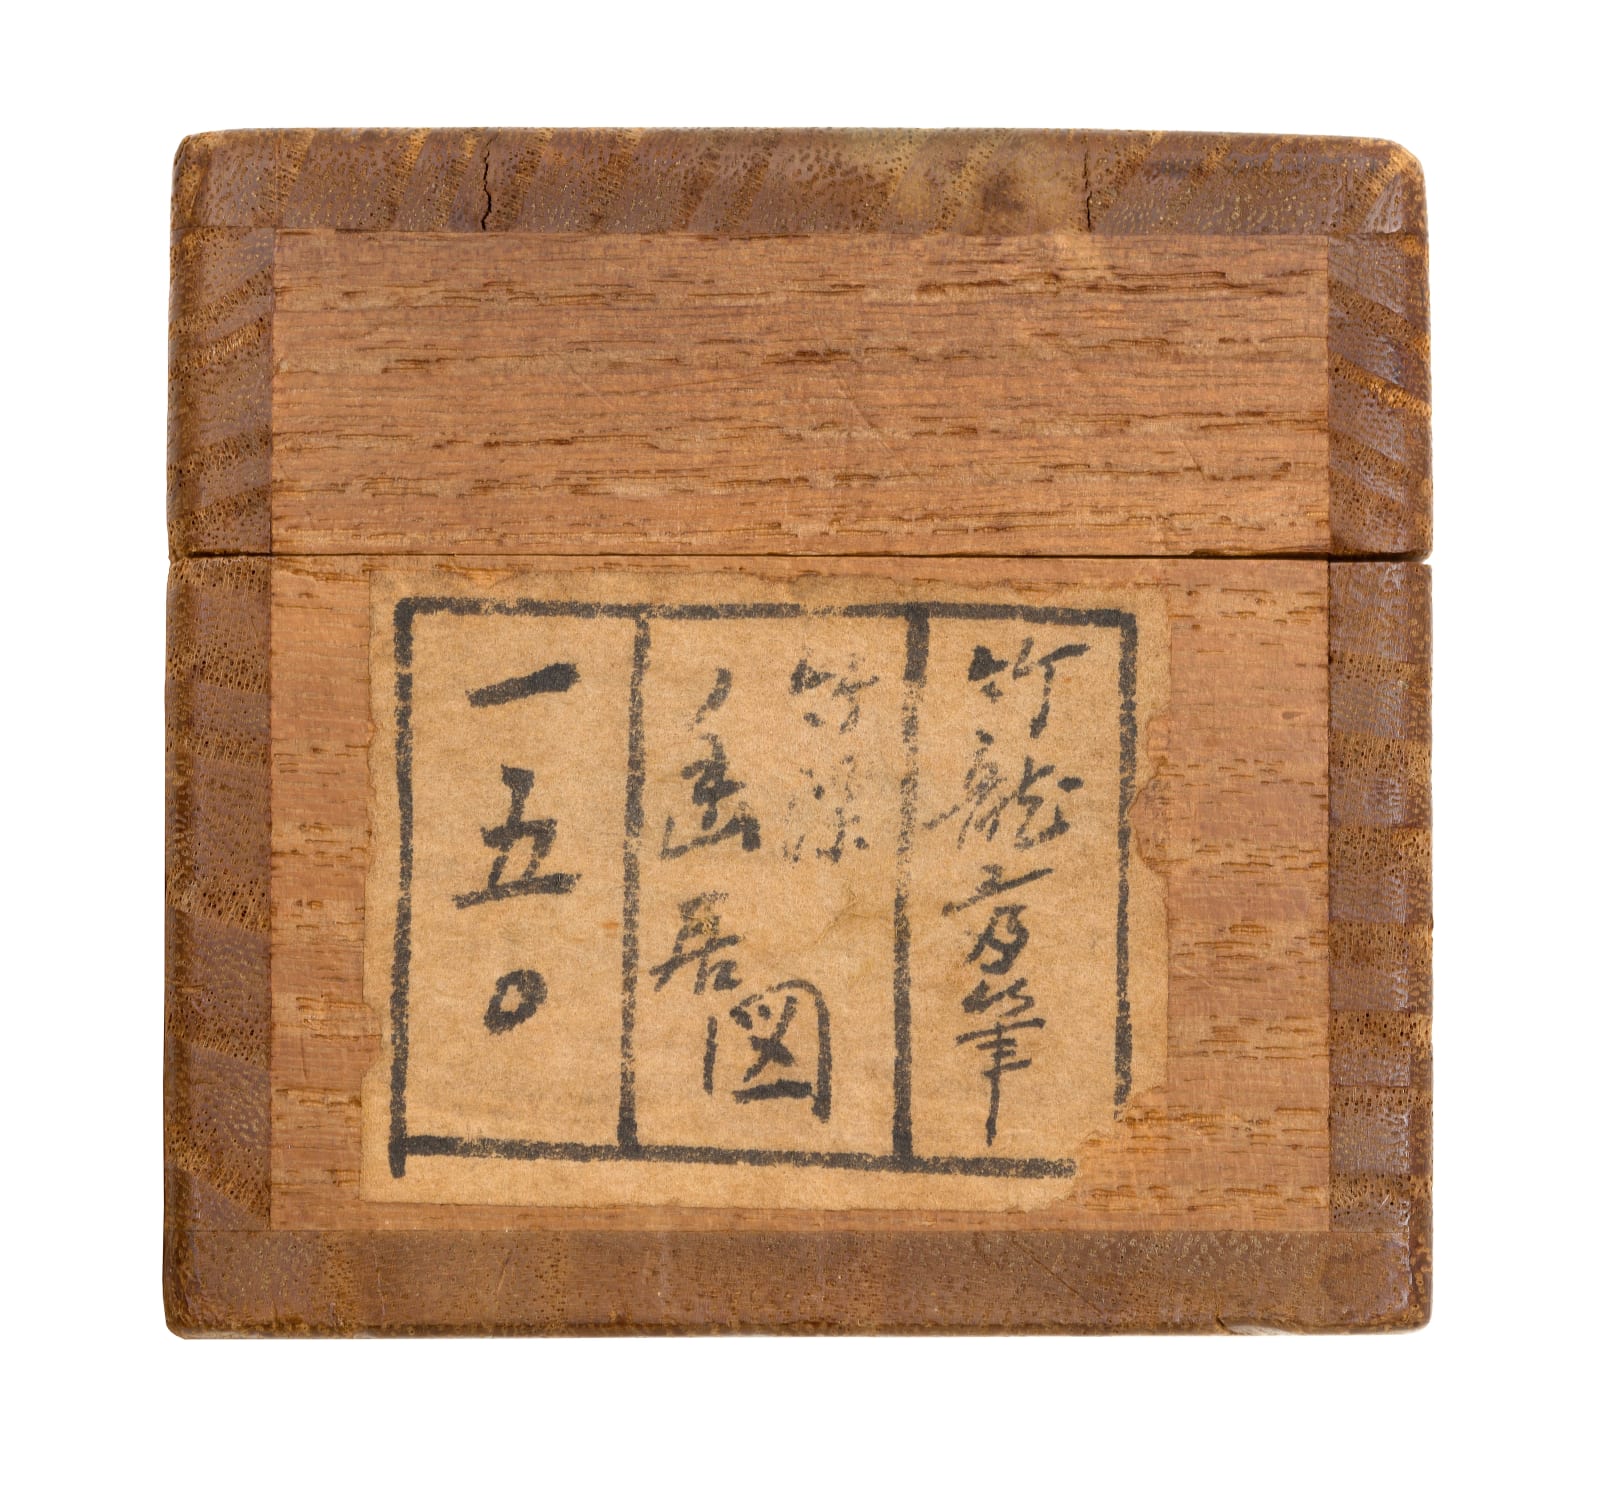 竹龍斎筆
竹深
ノ幽居図
一五〇